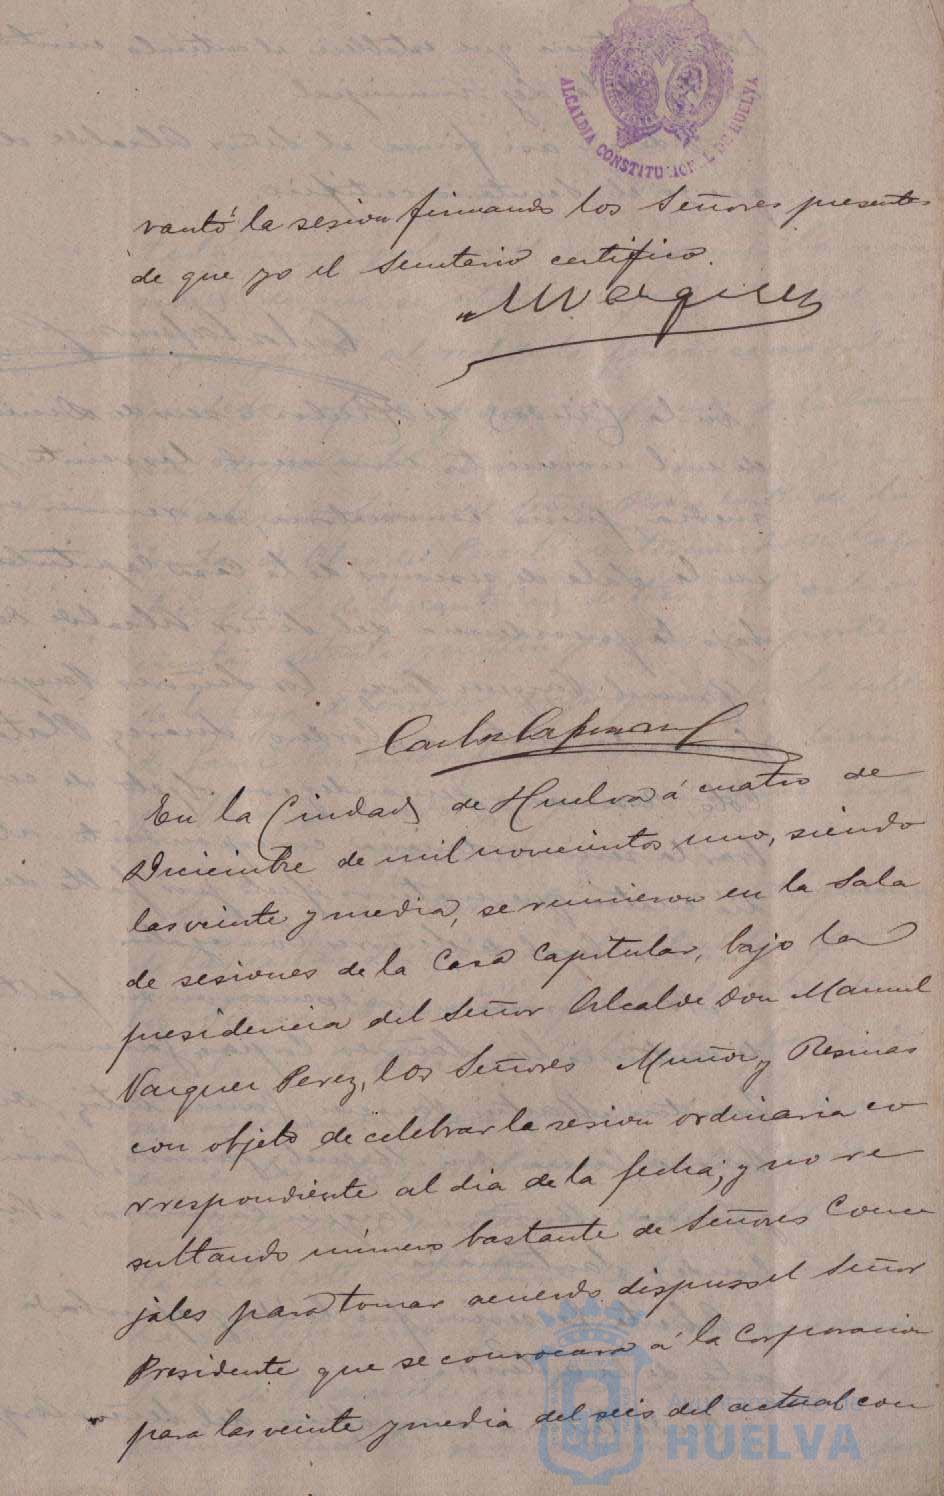 ALCALDIA CONSTITUCIONAL DE HUELVA
vantó la sesion firmando los Señores presentes
de que yo el Secretario certifico.
M Vazquez
Carlos
En la Ciudad de Huelva á cuatro de
Diciembre de mil novecientos uno, siendo
las veinte y media, se reunieron en la Sala
de sesiones de la Casa Capitular, bajo la
presidencia del Señor Alcalde Don Manuel
Vazquez Perez, los Señores Muñoz y Resinas
con objeto de celebrar la sesion ordinaria co
rrespondiente al dia de la fecha; y no re
sultando número bastante de Señores Conce
jales para tomar acuerdo dispuso el Señor
Presidente que se convocara á la Corporacion
para las veinte y media del seis del actual con
HUELVA